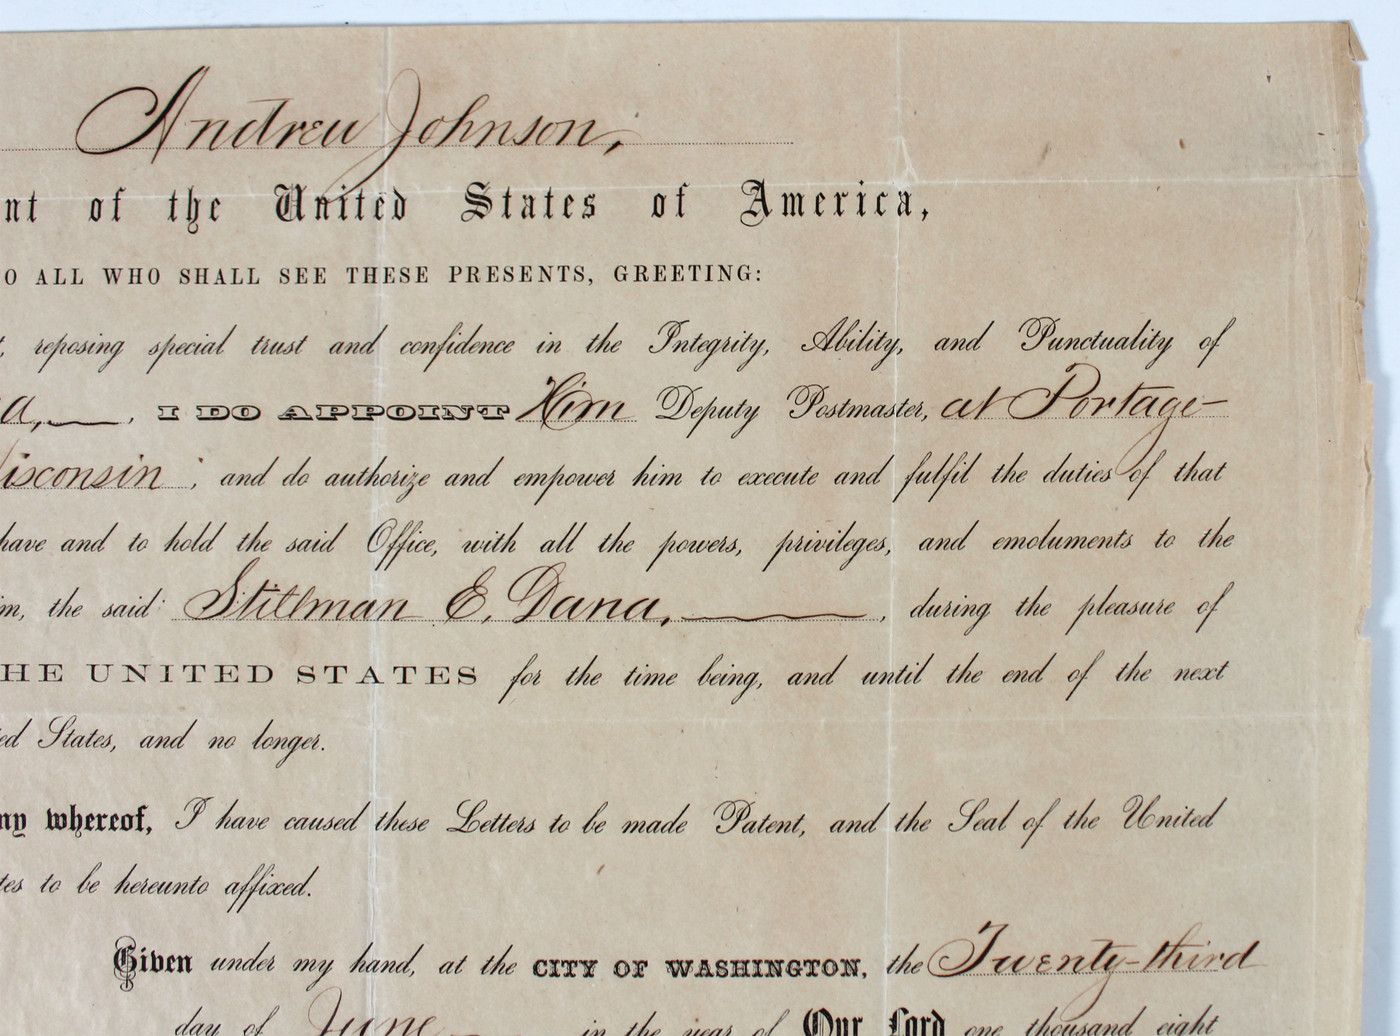 Andrew Johnson,
nt of the United States of America,
O ALL WHO SHALL SEE THESE PRESENTS, GREETING:
t, reposing special trust and confidence in the Integrity, Ability, and Punctuality of
a, —, I DO APPOINT Him Deputy Postmaster, at Portage—
isconsin ; and do authorize and empower him to execute and fulfil the duties of that
have and to hold the said Office, with all the powers, privileges, and emoluments to the
im, the said Stillman E. Dana, —, during the pleasure of
HE UNITED STATES for the time being, and until the end of the next
ed States, and no longer.
ny whereof, I have caused these Letters to be made Patent, and the Seal of the United
tes to be hereunto affixed.
Given under my hand, at the CITY OF WASHINGTON, the Twenty-third
day of June — in the year of Our Lord one thousand eight